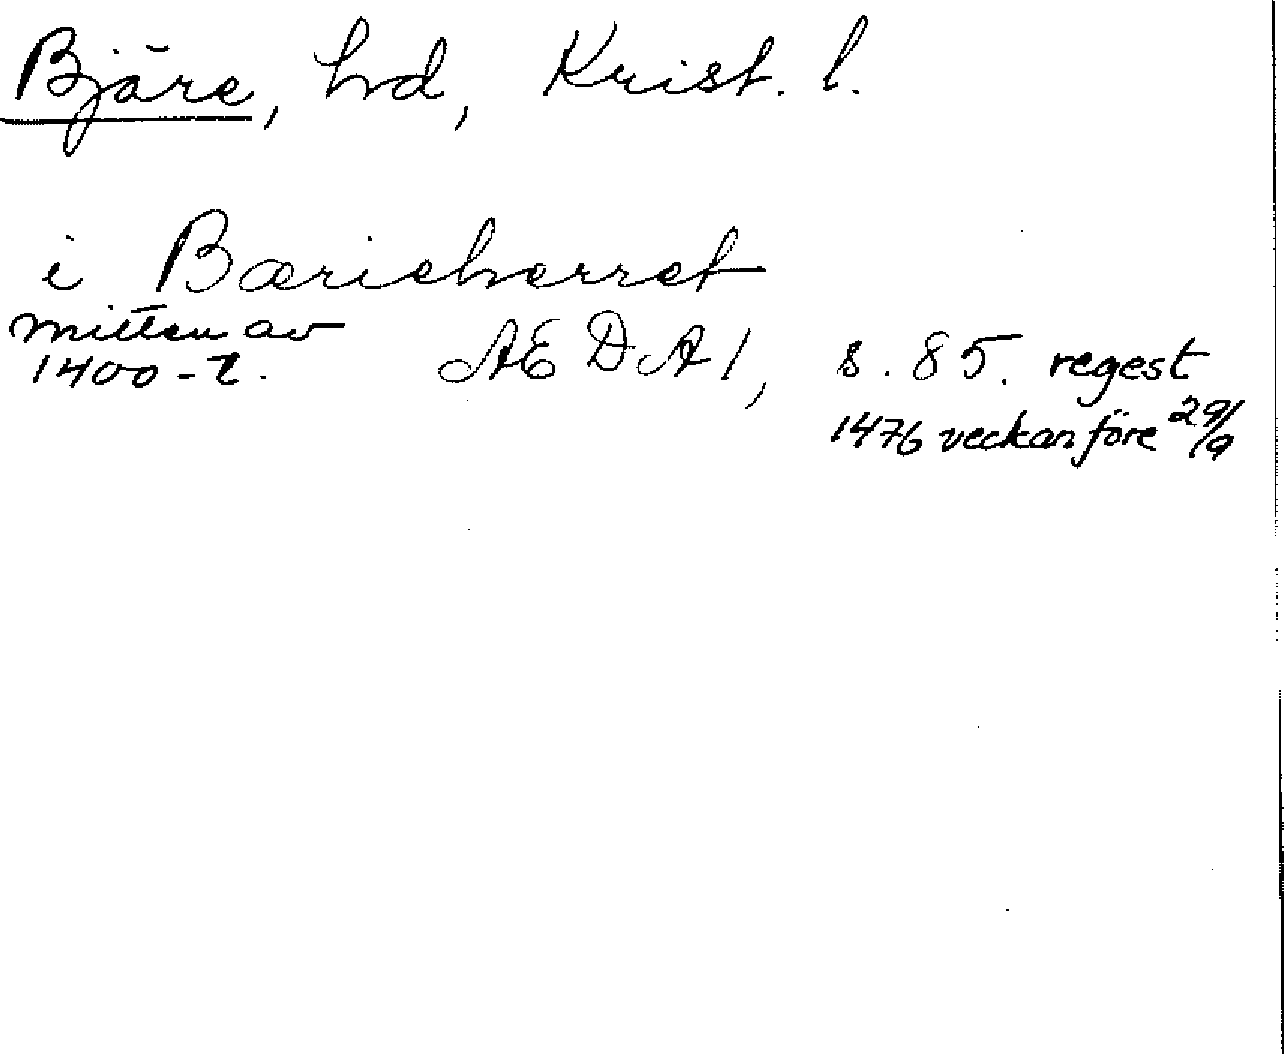 Bjäre, hd, Krist. l.
i Bærieherret
mitten av
1400-t.
AEDA 1, s. 85. regest
1476 veckan före 29/9